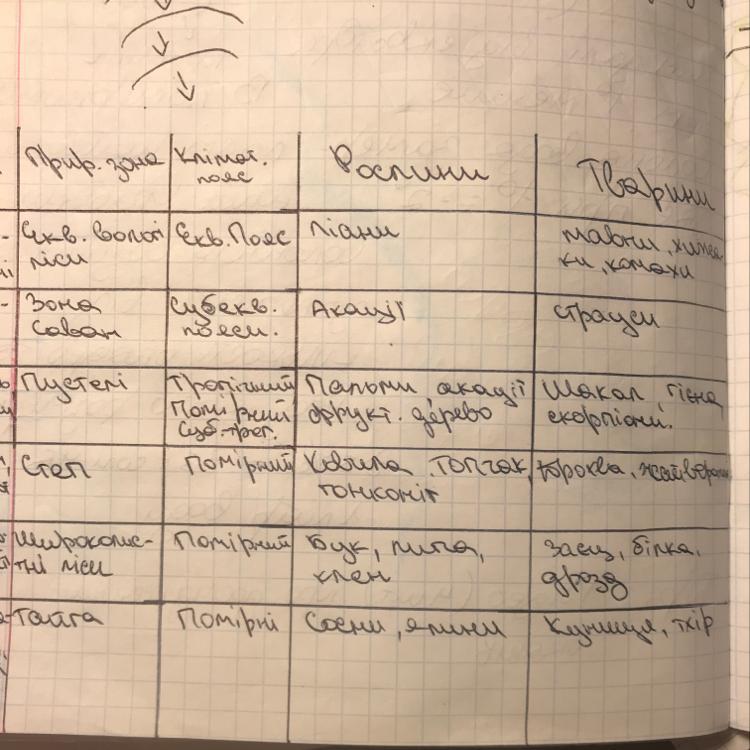 Прир. зона
Клімат.
пояс
Рослини
Тварини
Екв. вологі
ліси
Екв. Пояс
Ліани
мавпи, хижа
ки, комахи
Зона
Саван
Субекв.
пояси.
Акації
страуси
Пустелі
Тропічний
Помірний
Суб.троп.
Пальми, акації
фрукт. дерево
Шакал, гієна
скорпіони.
Степ
Помірний
Ковила, топчак,
тонконіг
жайворонк
Широколис-
тні ліси
Помірний
Бук, липа,
клен
заєць, білка,
дрозд
Тайга
Помірні
Сосни, ялини
Куниця, тхір